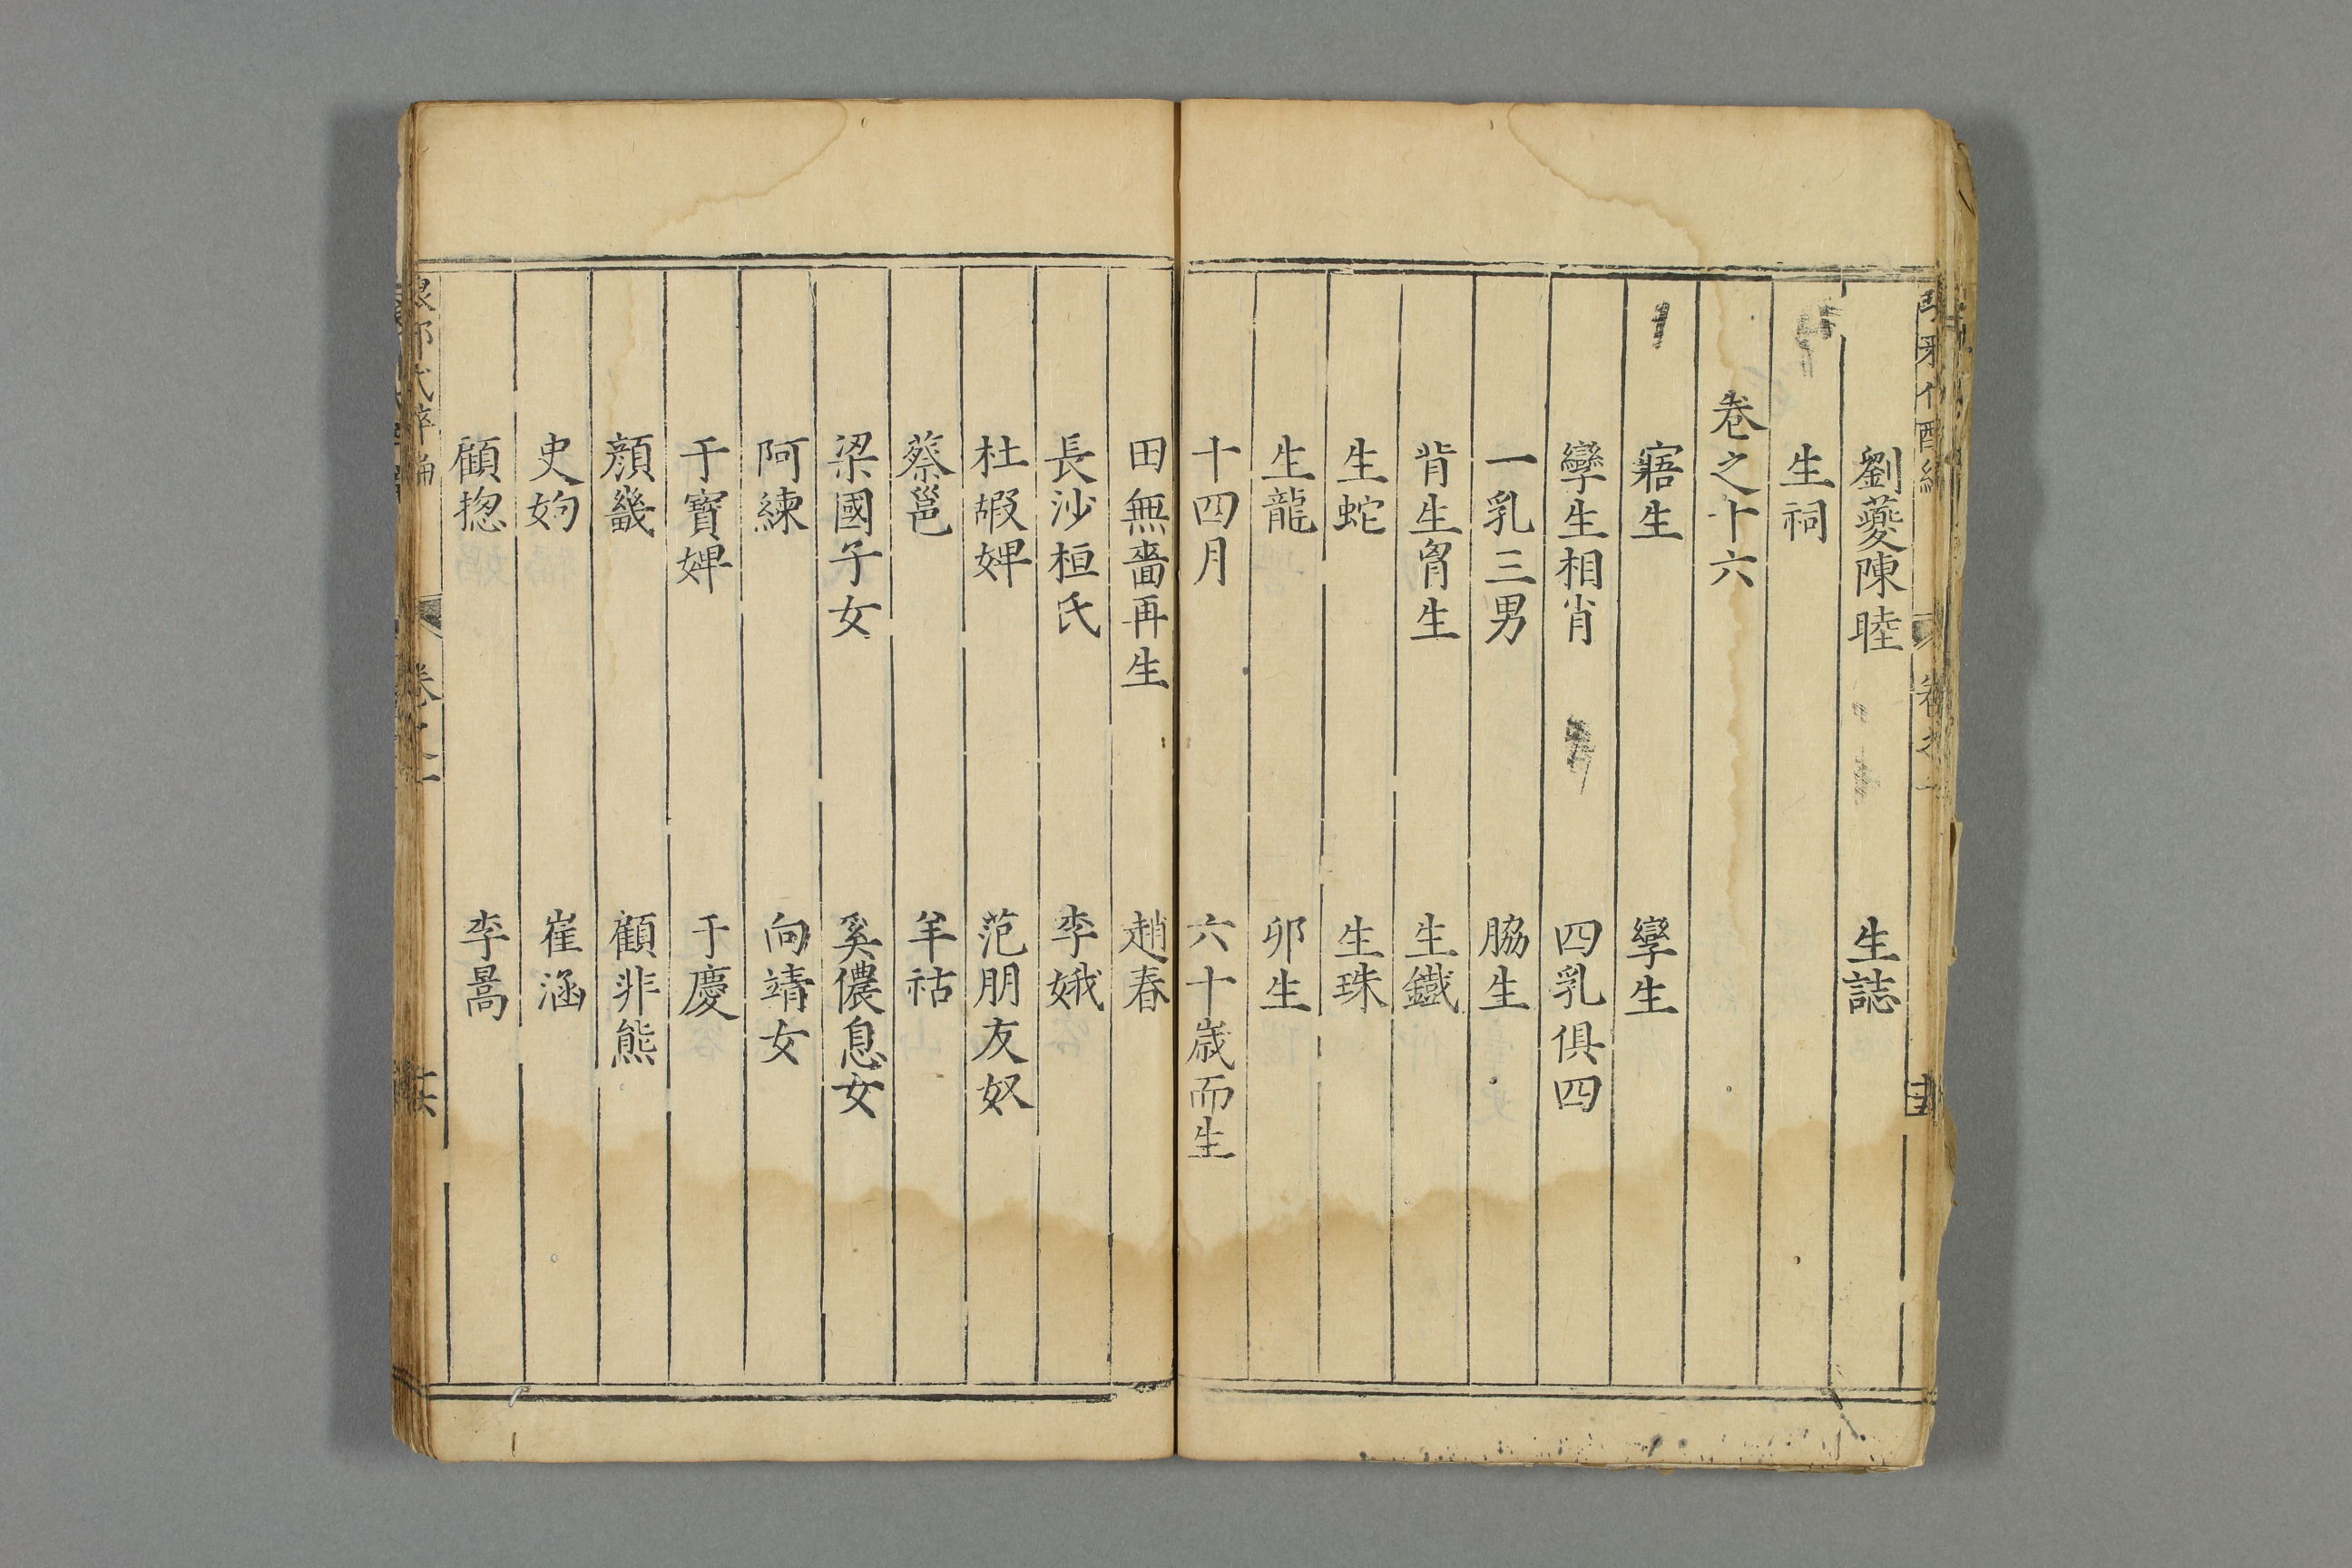 劉夔陳睦 生誌
生祠
卷之十六
寤生 孿生
孿生相肖 四乳俱四
一乳三男 脇生
背生胷生 生鐵
生蛇 生珠
生龍 卵生
十四月 六十歲而生
田無嗇再生 趙春
長沙桓氏 李娥
杜嘏婢 范朋友奴
蔡邕 羊祜
梁國子女 奚儂息女
阿練 向靖女
干寳婢 于慶
顔畿 顧非熊
史姁 崔涵
顧揔 李暠